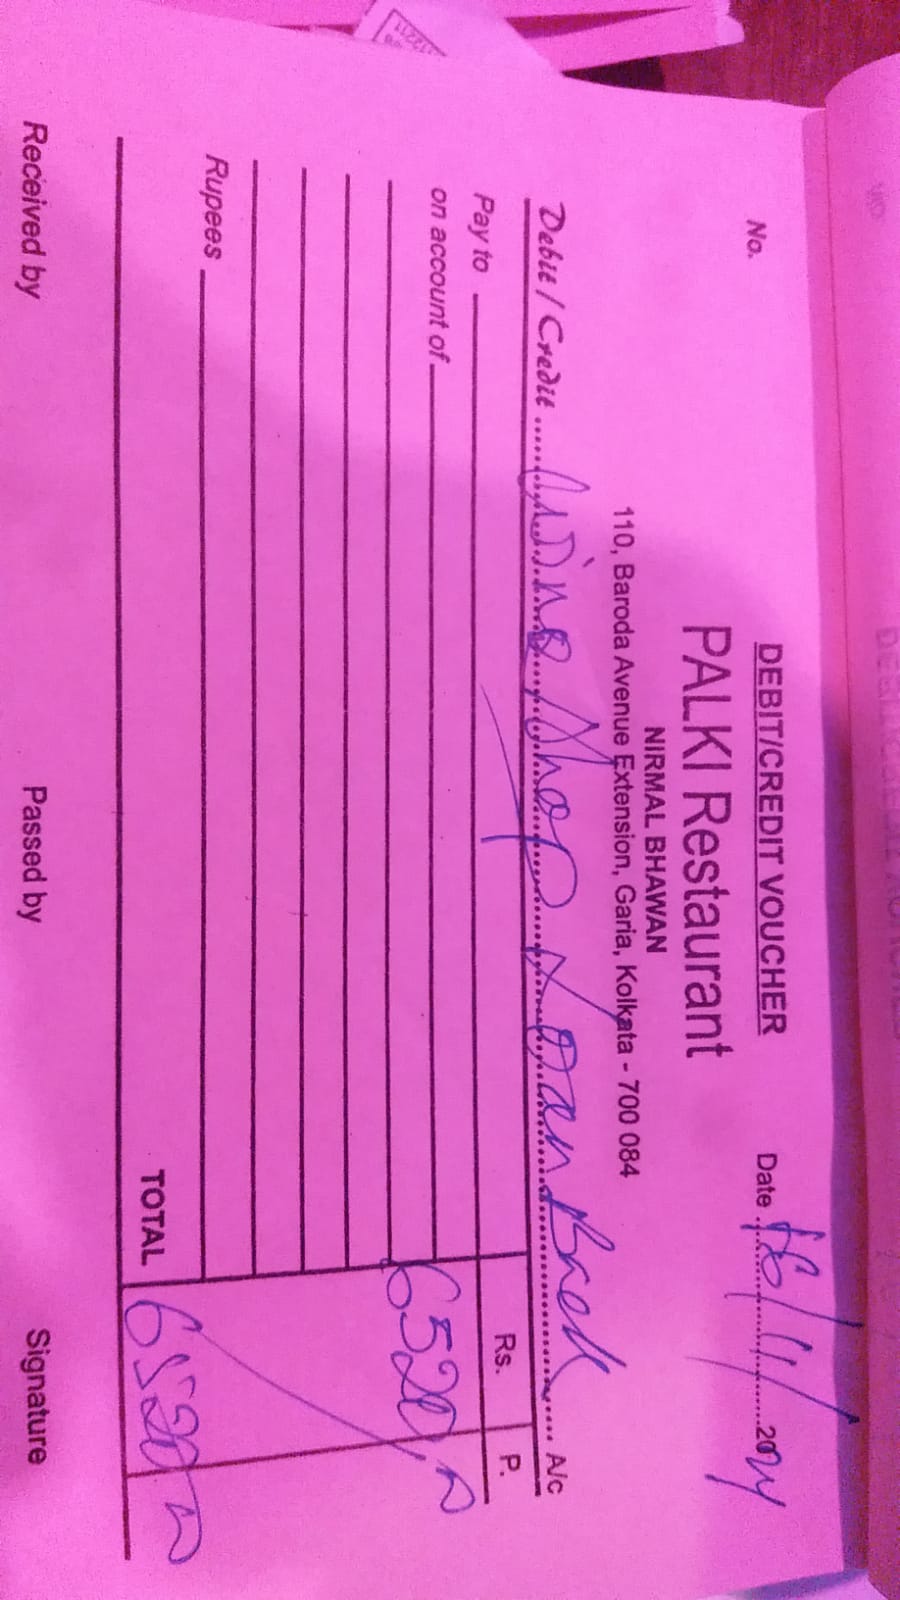 DEBIT/CREDIT VOUCHER
No. Date 16/11/2024
PALKI Restaurant
NIRMAL BHAWAN
110, Baroda Avenue Extension, Garia, Kolkata - 700 084
Debit / Credit Wine Shop Loan Back A/c
Pay to Rs. P.
on account of
6520,
Rupees
TOTAL 6520
Received by Passed by Signature